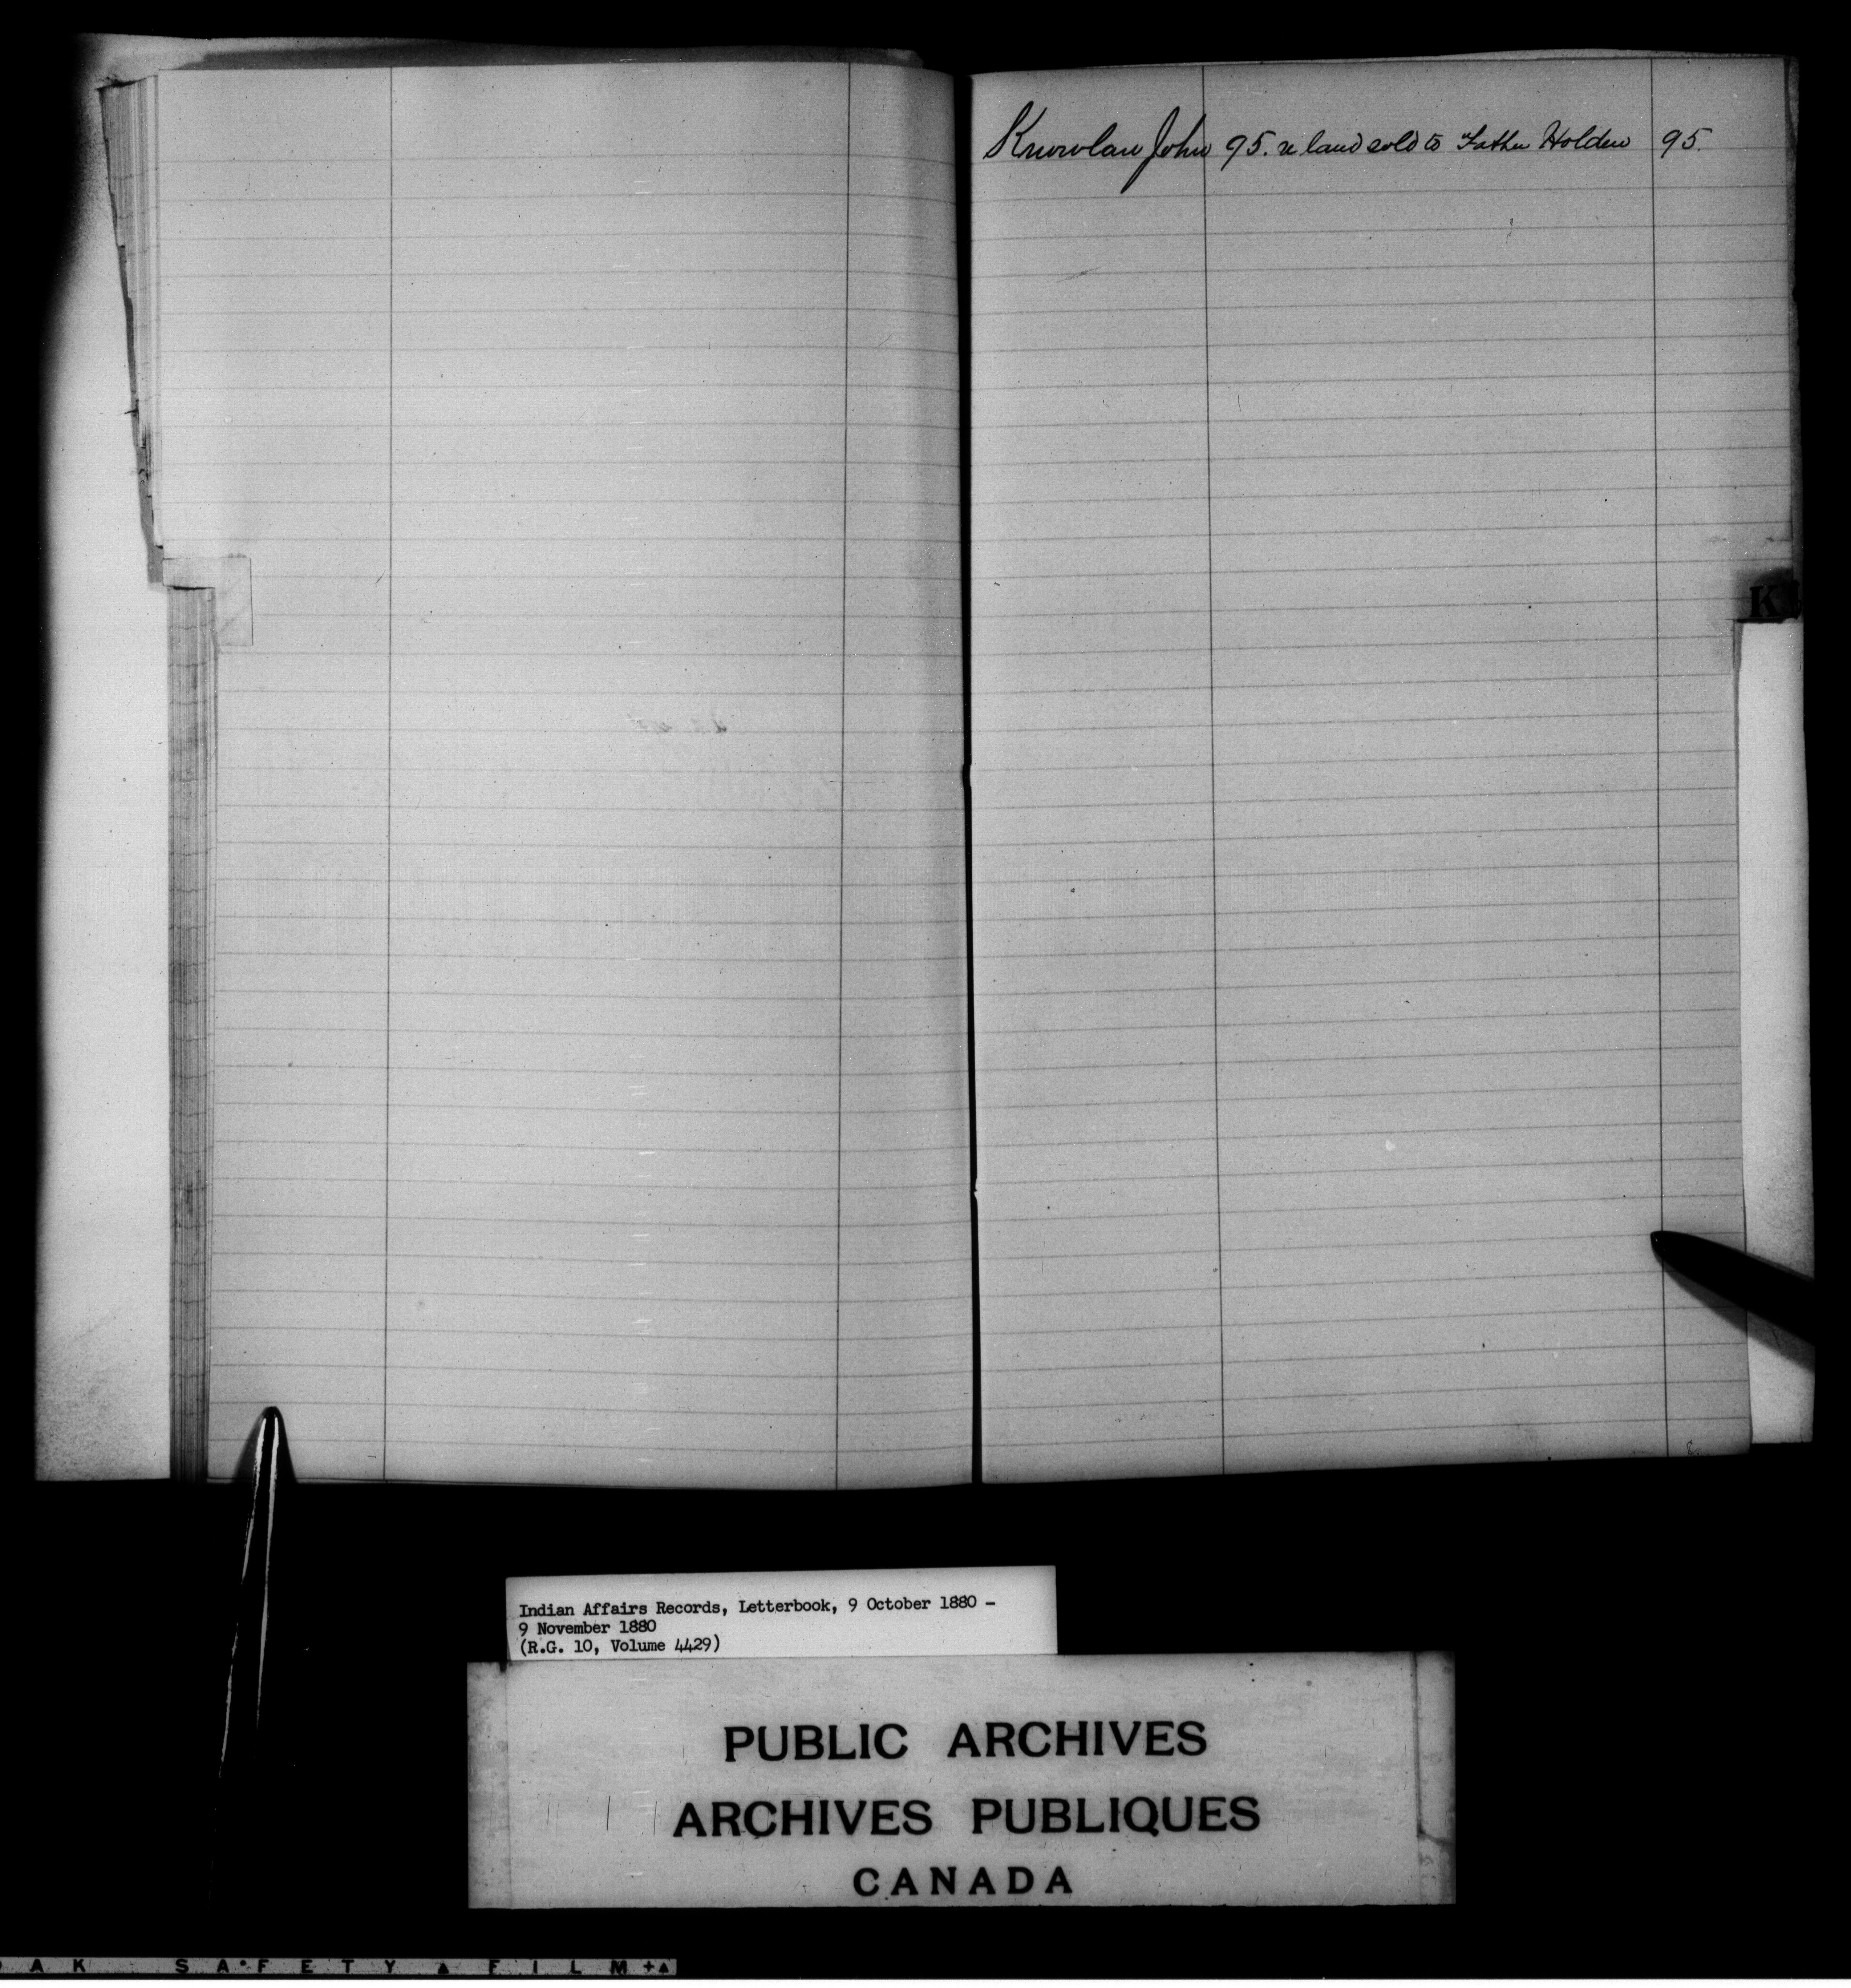 Knowlan John 95. re land sold to Father Holden 95.
K
Indian Affairs Records, Letterbook, 9 October 1880 –
9 November 1880
(R.G. 10, Volume 4429)
PUBLIC ARCHIVES
ARCHIVES PUBLIQUES
CANADA
AK SAFETY FILM